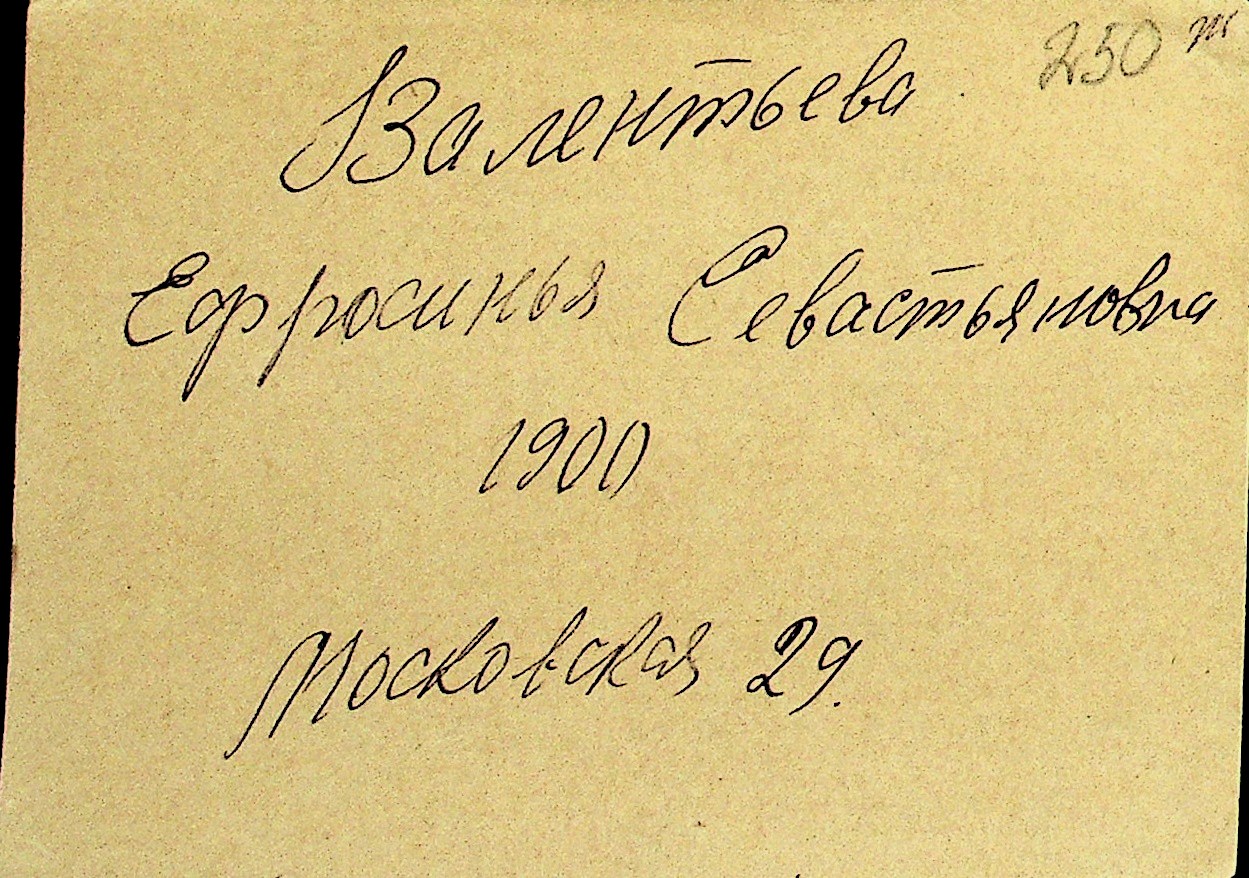 250
Валентьева
Ефросинья Севастьяновна
1900
Московская 29.